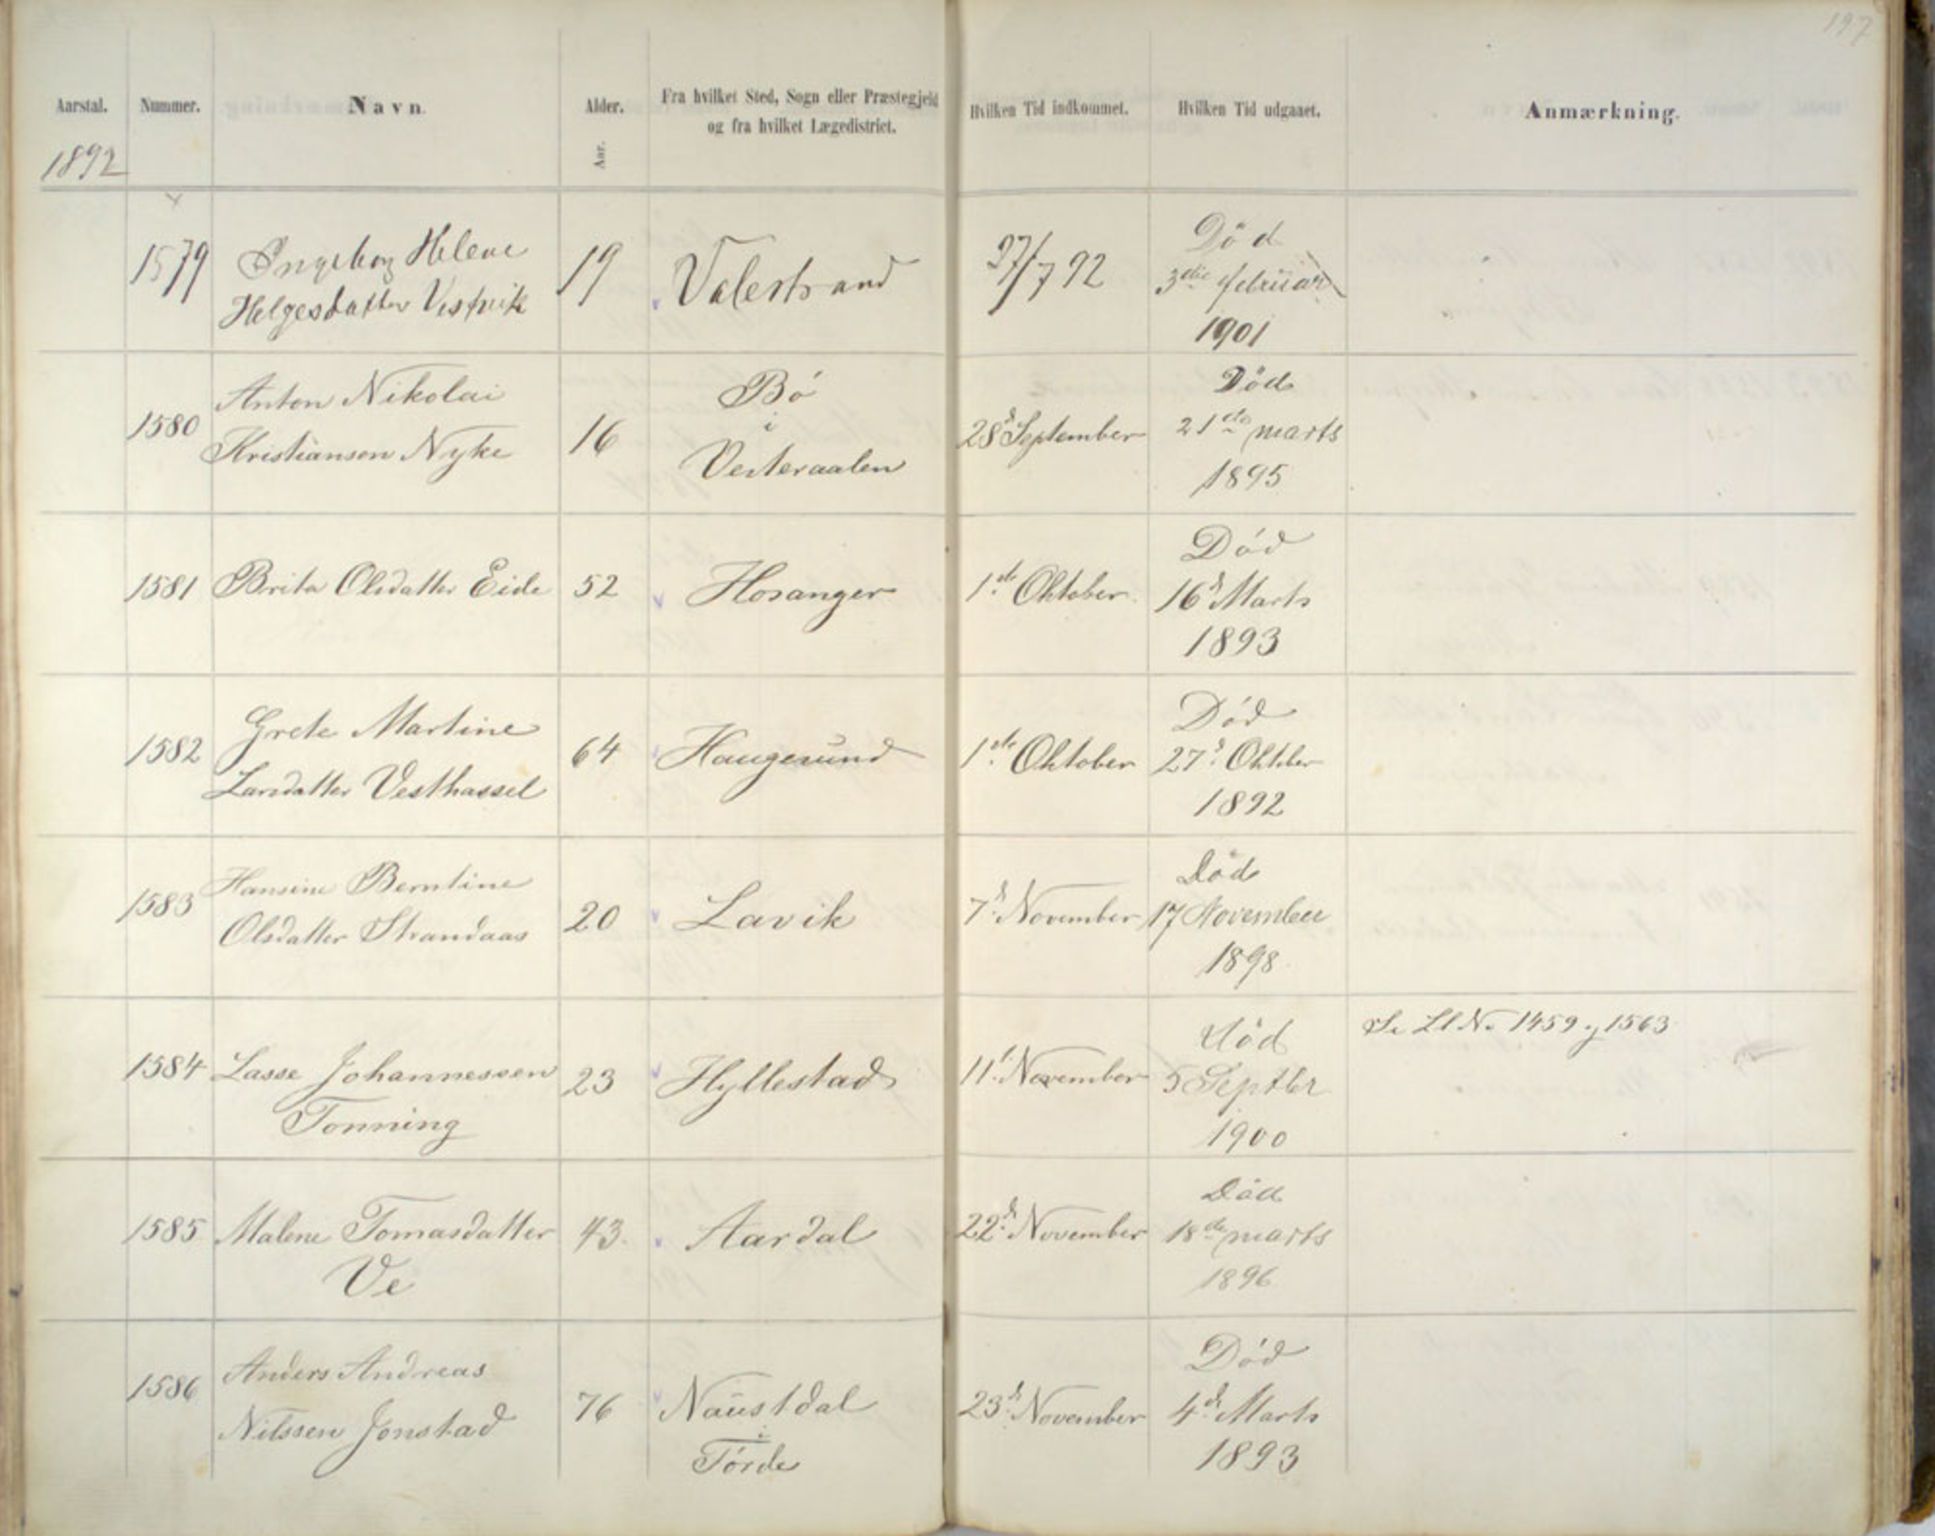 197
Aarstal. Nummer. Navn. Alder. Fra hvilket Sted, Sogn eller Præstegjeld Hvilken Tid indkommet. Hvilken Tid udgaaet. Anmærkning.
og fra hvilket Lægedistrict.
Aar.
1892
1579 Ingeborg Helene 19 Valestrand 27/7 92 Død
Helgesdatter Vestvik 3die februar
1901
1580 Anton Nikolai 16 Bó 28d September Död
Kristiansen Nyke i 21de marts
Vesteraalen 1895
1581 Brita Olsdatter Eide 52 Hosanger 1ste Oktober Död
16d Marts
1893
1582 Grete Martine 64 Haugesund 1ste Oktober Död
Larsdatter Vesthassel 27d Oktber
1892
1583 Hansine Berntine 20 Lavik 7d November Död
Olsdatter Strandaas 17 November
1898
1584 Lasse Johannessen 23 Hyllestad 11t November död Se Ll No 1459 og 1563
Tonning 5 Septbr
1900
1585 Malene Tomasdatter 43. Aardal 22d November Död
Ve 18de marts
1896
1586 Anders Andreas 76 Naustdal 23d November Död
Nilssen Jonstad i 4d Marts
Förde 1893